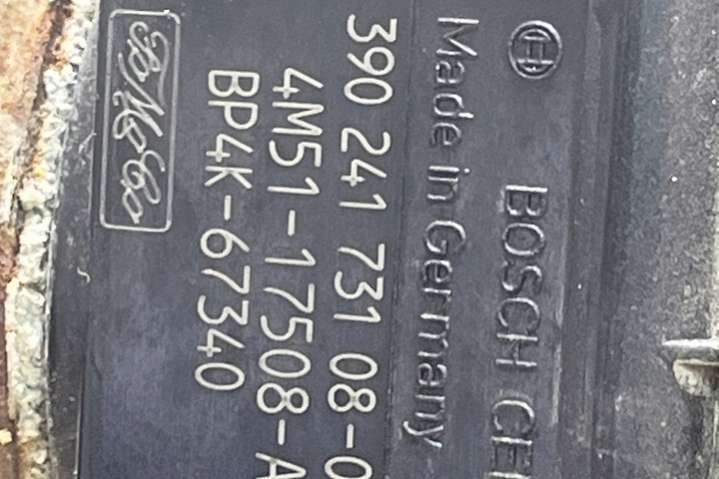 BOSCH CE
Made in Germany
390 241 731 08-0
4M51-17508-A
BP4K-67340
FoMoCo